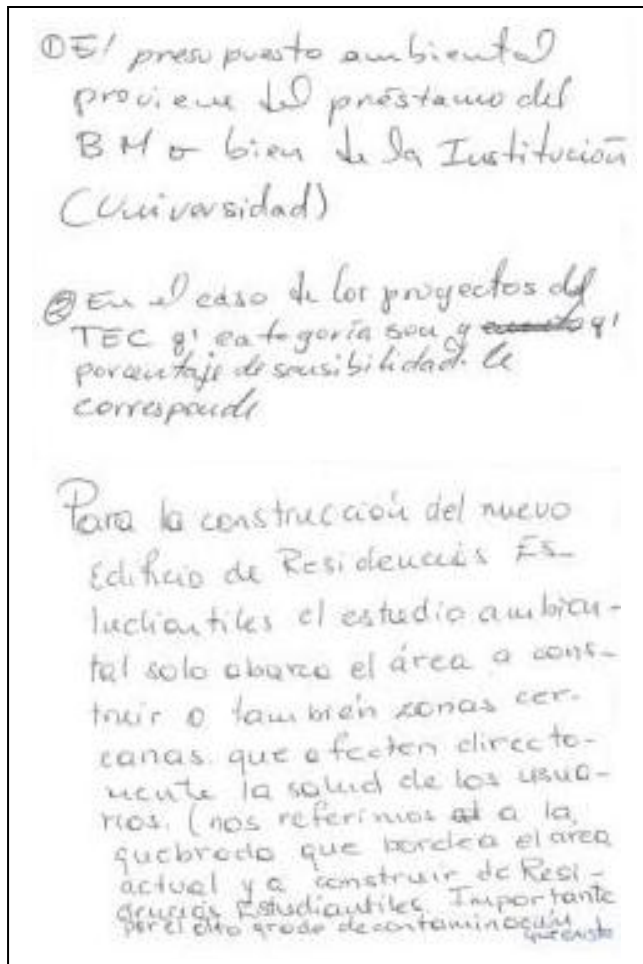 ① El presupuesto ambiental
proviene del préstamo del
BM o bien de la Institución
(Universidad)
② En el caso de los proyectos del
TEC q' categoría son y q'
porcentaje de sensibilidad le
corresponde
Para la construcción del nuevo
Edificio de Residencias Es-
tudiantiles el estudio ambien-
tal solo abarca el área a cons-
truir o también zonas cer-
canas que afecten directa-
mente la salud de los usua-
rios. (nos referimos a la
quebrada que bordea el area
actual y a construir de Resi-
dencias Estudiantiles. Importante
por el alto grado de contaminación
que existe